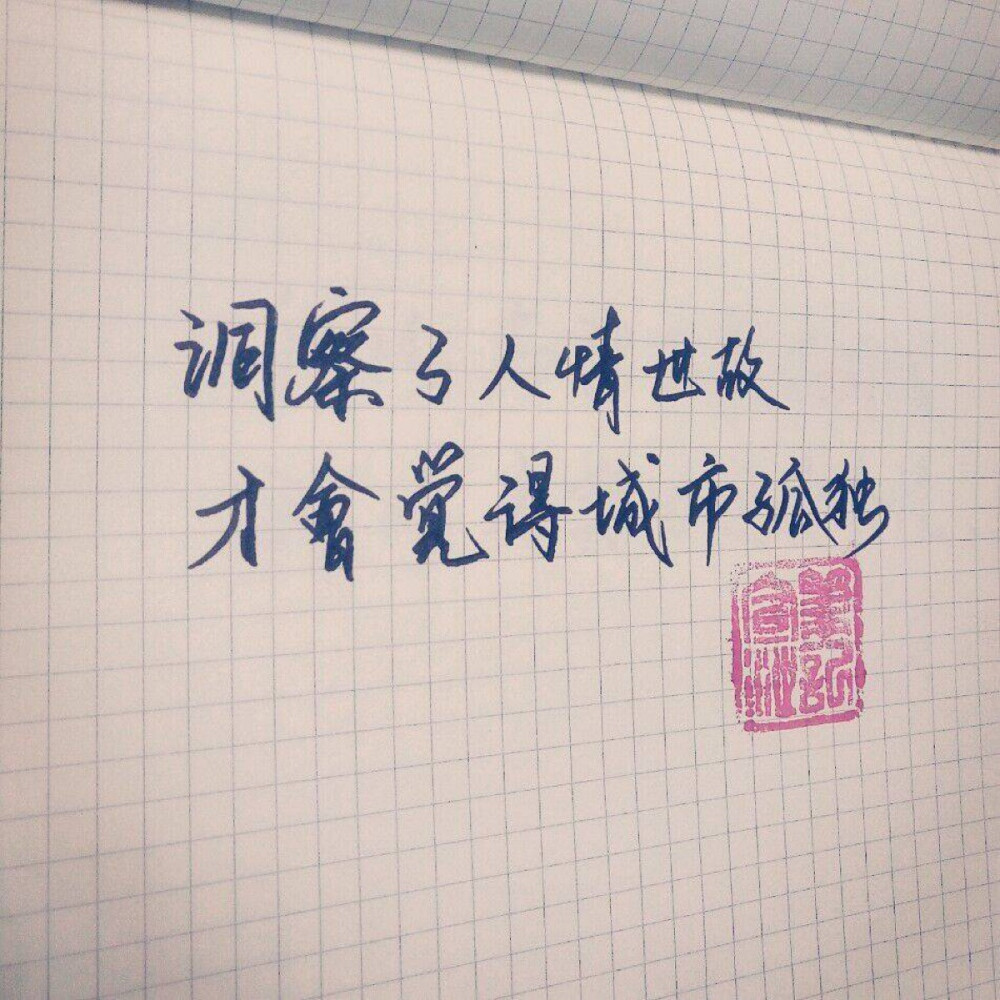 洞察了人情世故
才會觉得城市孤独
笔记